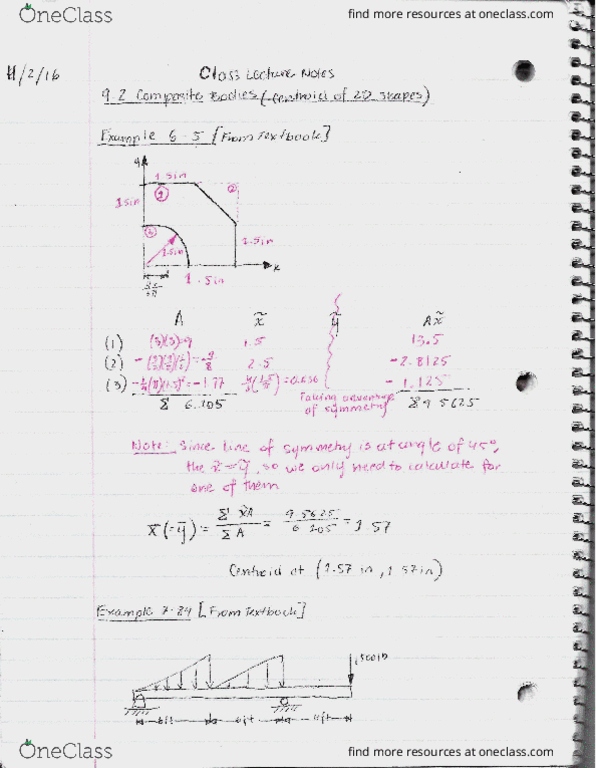 OneClass
find more resources at oneclass.com
11/2/16
Class Lecture Notes
9.2 Composite Bodies (Centroid of 2D shapes)
Example 6-5 [From Textbook]
y
1.5in
1
2
1.5in
3
1.5in
1.5in
x
1.5in
A x̃ ỹ Ax̃
(1) (3)(3)=9 1.5 13.5
(2) 2.5 -2.8125
(3) = -1.77 = 0.636 -1.125
Σ 6.105 Taking advantage of symmetry Σ 9.5625
Note: Since line of symmetry is at angle of 45°,
the x̄=ȳ, so we only need to calculate for
one of them
x̄(=ȳ) = Σx̃A / ΣA = 9.5625 / 6.105 = 1.57
Centroid at (1.57 in, 1.57in)
Example 7-24 [From Textbook]
6ft 6ft
OneClass
find more resources at oneclass.com